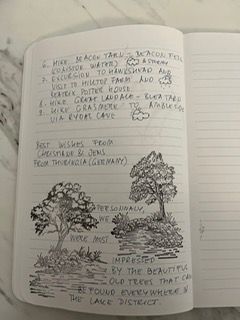 6. HIKE BEACON TARN - BEACON FELL
(CONISTON WATER)
7. EXCURSION TO HAWKSHEAD AND
VISIT TO HILLTOP FARM AND
BEATRIX POTTER HOUSE.
8. HIKE GREAT LANGDALE - BLEA TARN
9. HIKE GRASMERE - TO AMBLESIDE
VIA RYDAL CAVE
BEST WISHES FROM
CHRISTIANE & JENS
FROM THURINGIA (GERMANY)
PERSONALLY,
WE
WERE MOST
IMPRESSED
BY THE BEAUTIFUL
OLD TREES THAT CAN
BE FOUND EVERYWHERE IN
THE LAKE DISTRICT.